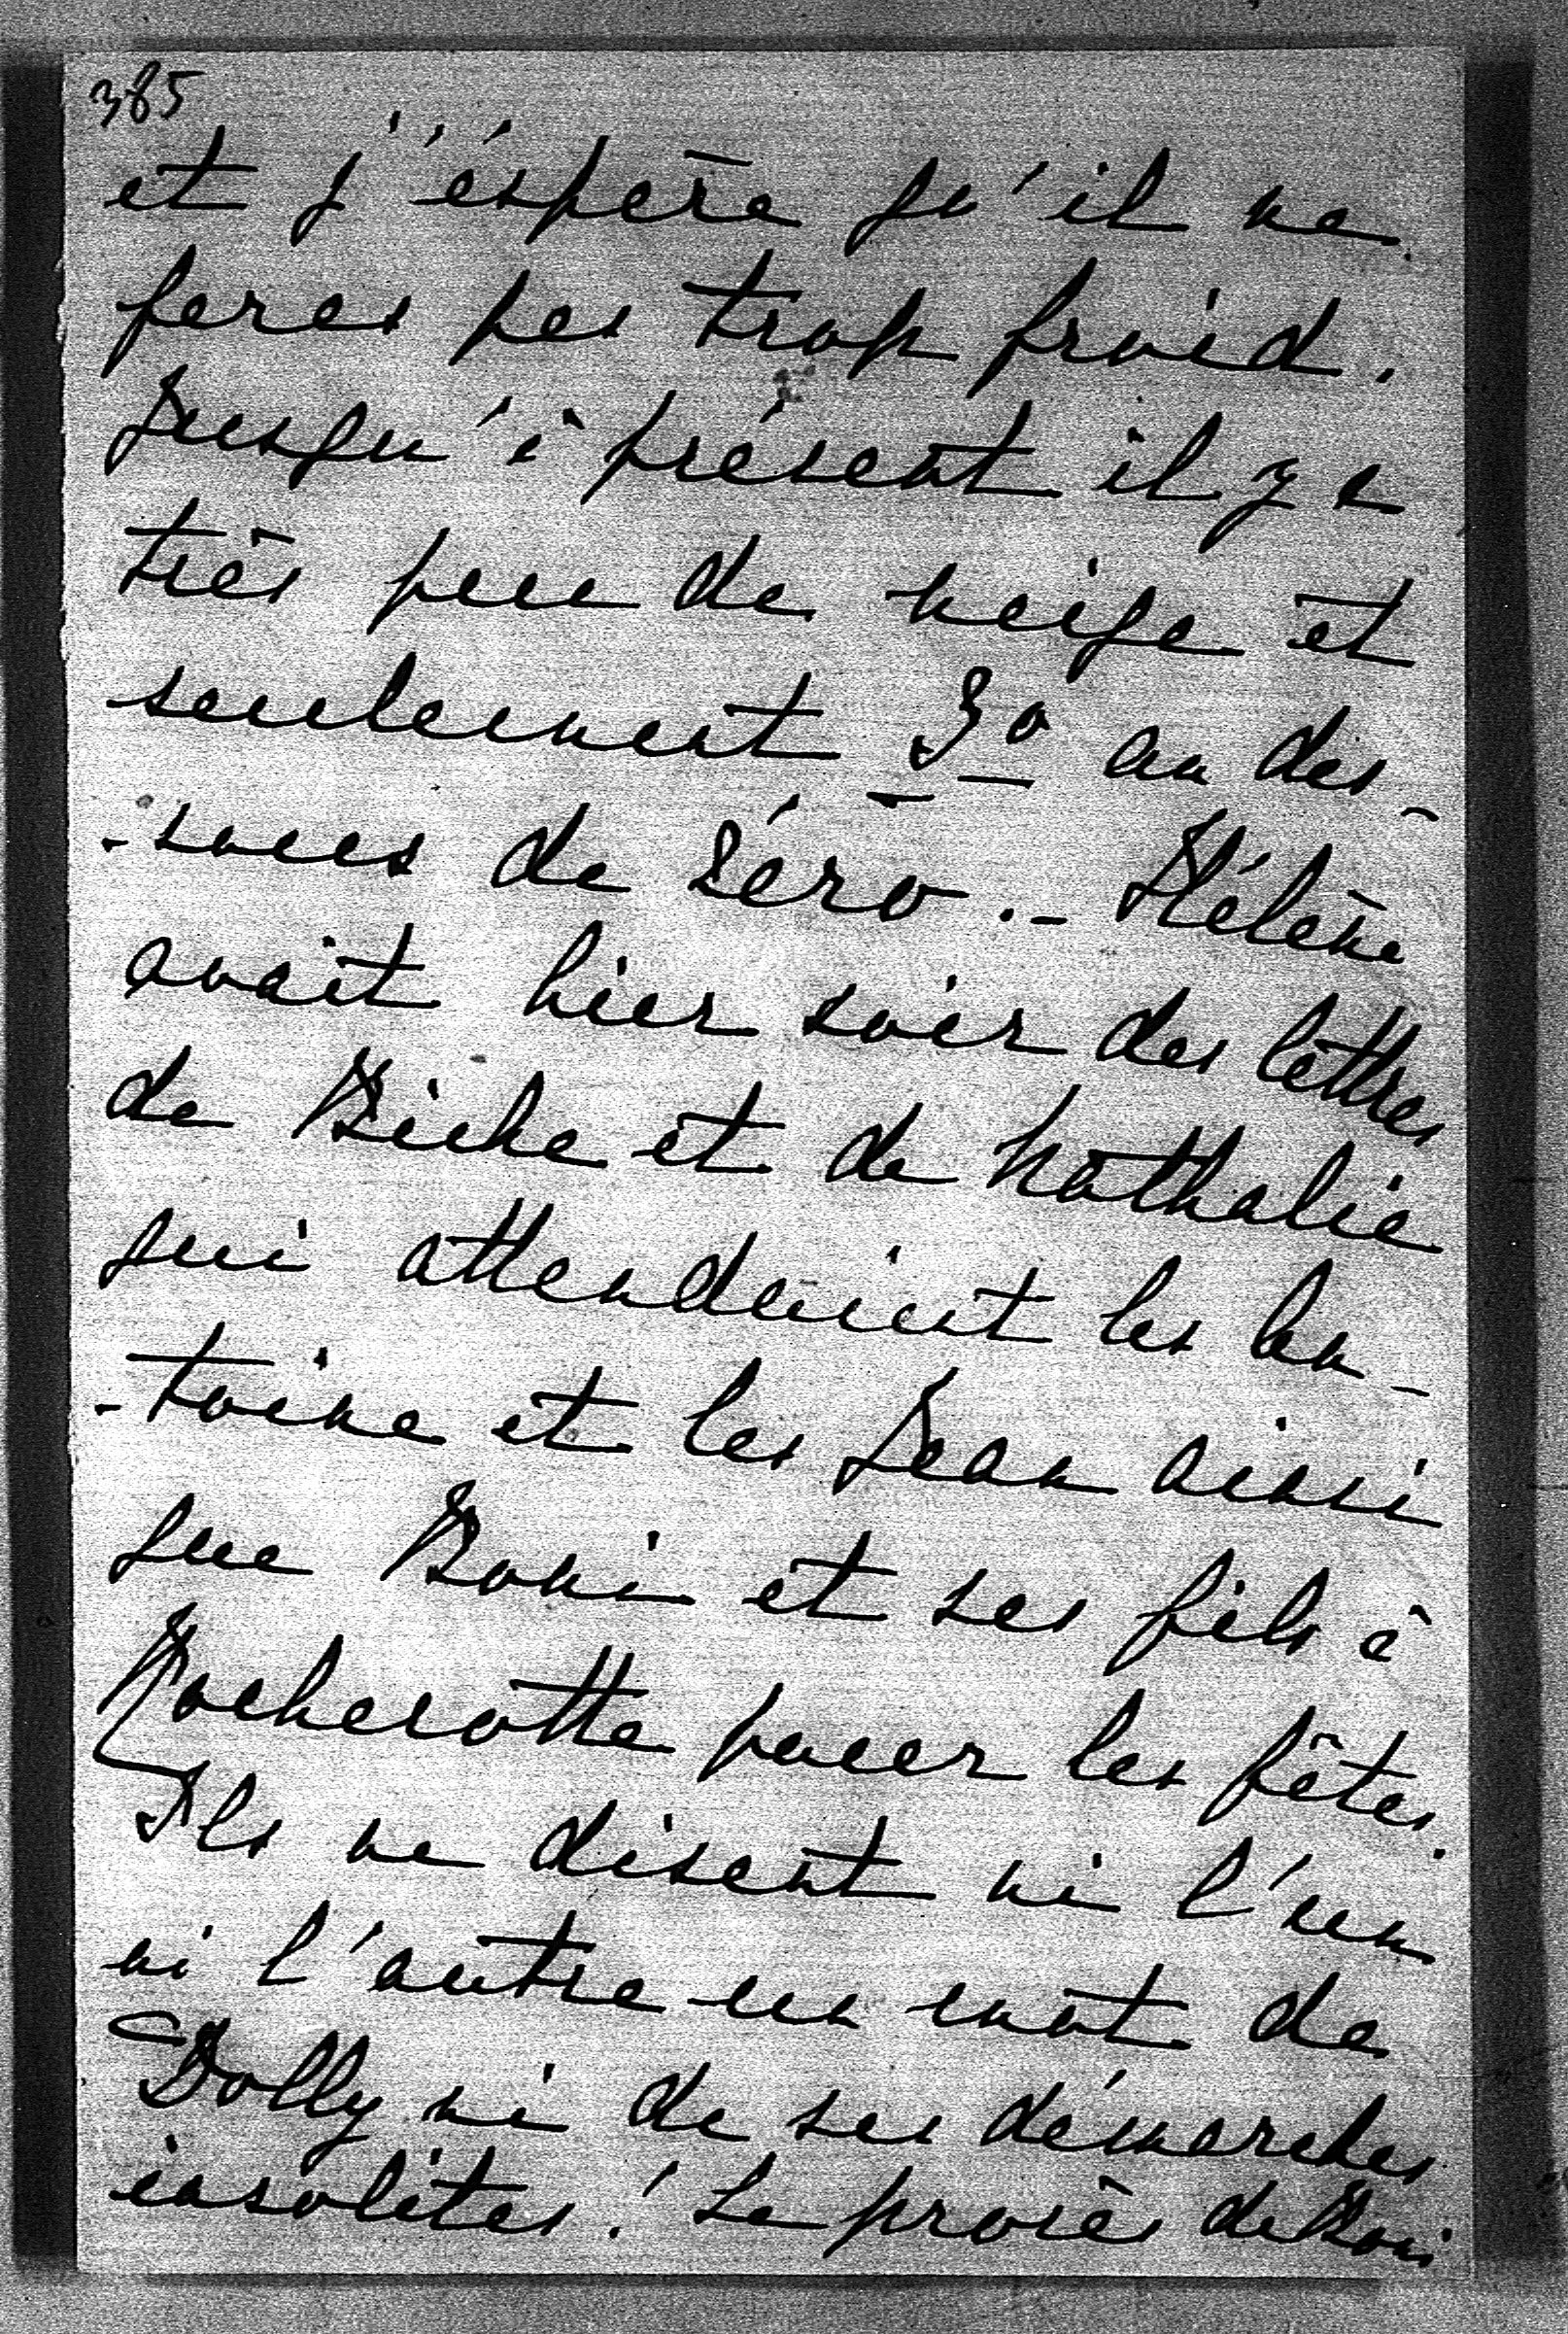 385
et j'éspère qu'il ne
feras pas trop froid.
Jusqu'à présent il y a
très peu de neige et
seulement 3° au des-
-sous de zéro. - Hélène
avait hier soir des lettres
de Biche et de Nathalie
qui attendaient les An-
-toine et les Jean ainsi
que Boni et ses fils à
Rochecotte pour les fêtes.
Ils ne disent ni l'un
ni l'autre un mot de
Dolly ni de ses démarches
insolites! Le procès de Boni